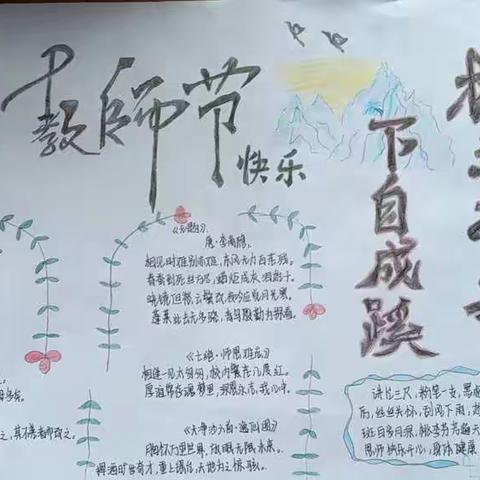 教師节
快乐
下自成蹊
《无题》
唐·李商隐
相见时难别亦难,东风无力百花残。
春蚕到死丝方尽,蜡炬成灰泪始干。
晓镜但愁云鬓改,夜吟应觉月光寒。
蓬莱此去无多路,青鸟殷勤为探看。
《七绝·师恩难忘》
相逢一见太匆匆,校内繁花几度红。
厚谊常存魂梦里,深恩永志我心中。
,其不善者而改之。
讲台三尺,粉笔一支,黑
雨,丝丝关怀,刮风下雨,
斑白多月痕,桃李芬芳遍天
恩师快乐开心,身体健康